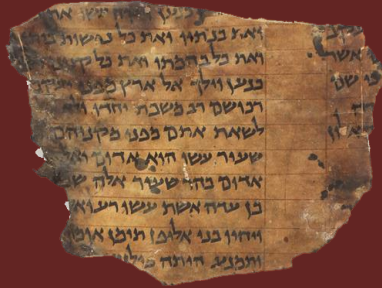 אשר
כנען ויקח עשו את
ואת בנתיו ואת כל נפשות
ואת כל בהמתו ואת כל קנינו
כנען וילך אל ארץ מפני
רכושם רב משבת יחדו ולא
לשאת אתם מפני מקניהם
שעיר עשו הוא אדום ואל
אדום בהר שעיר אלה שמ
בן עדה אשת עשו רעואל
ויהיו בני אליפז תימן אומ
ותמנע היתה פילג